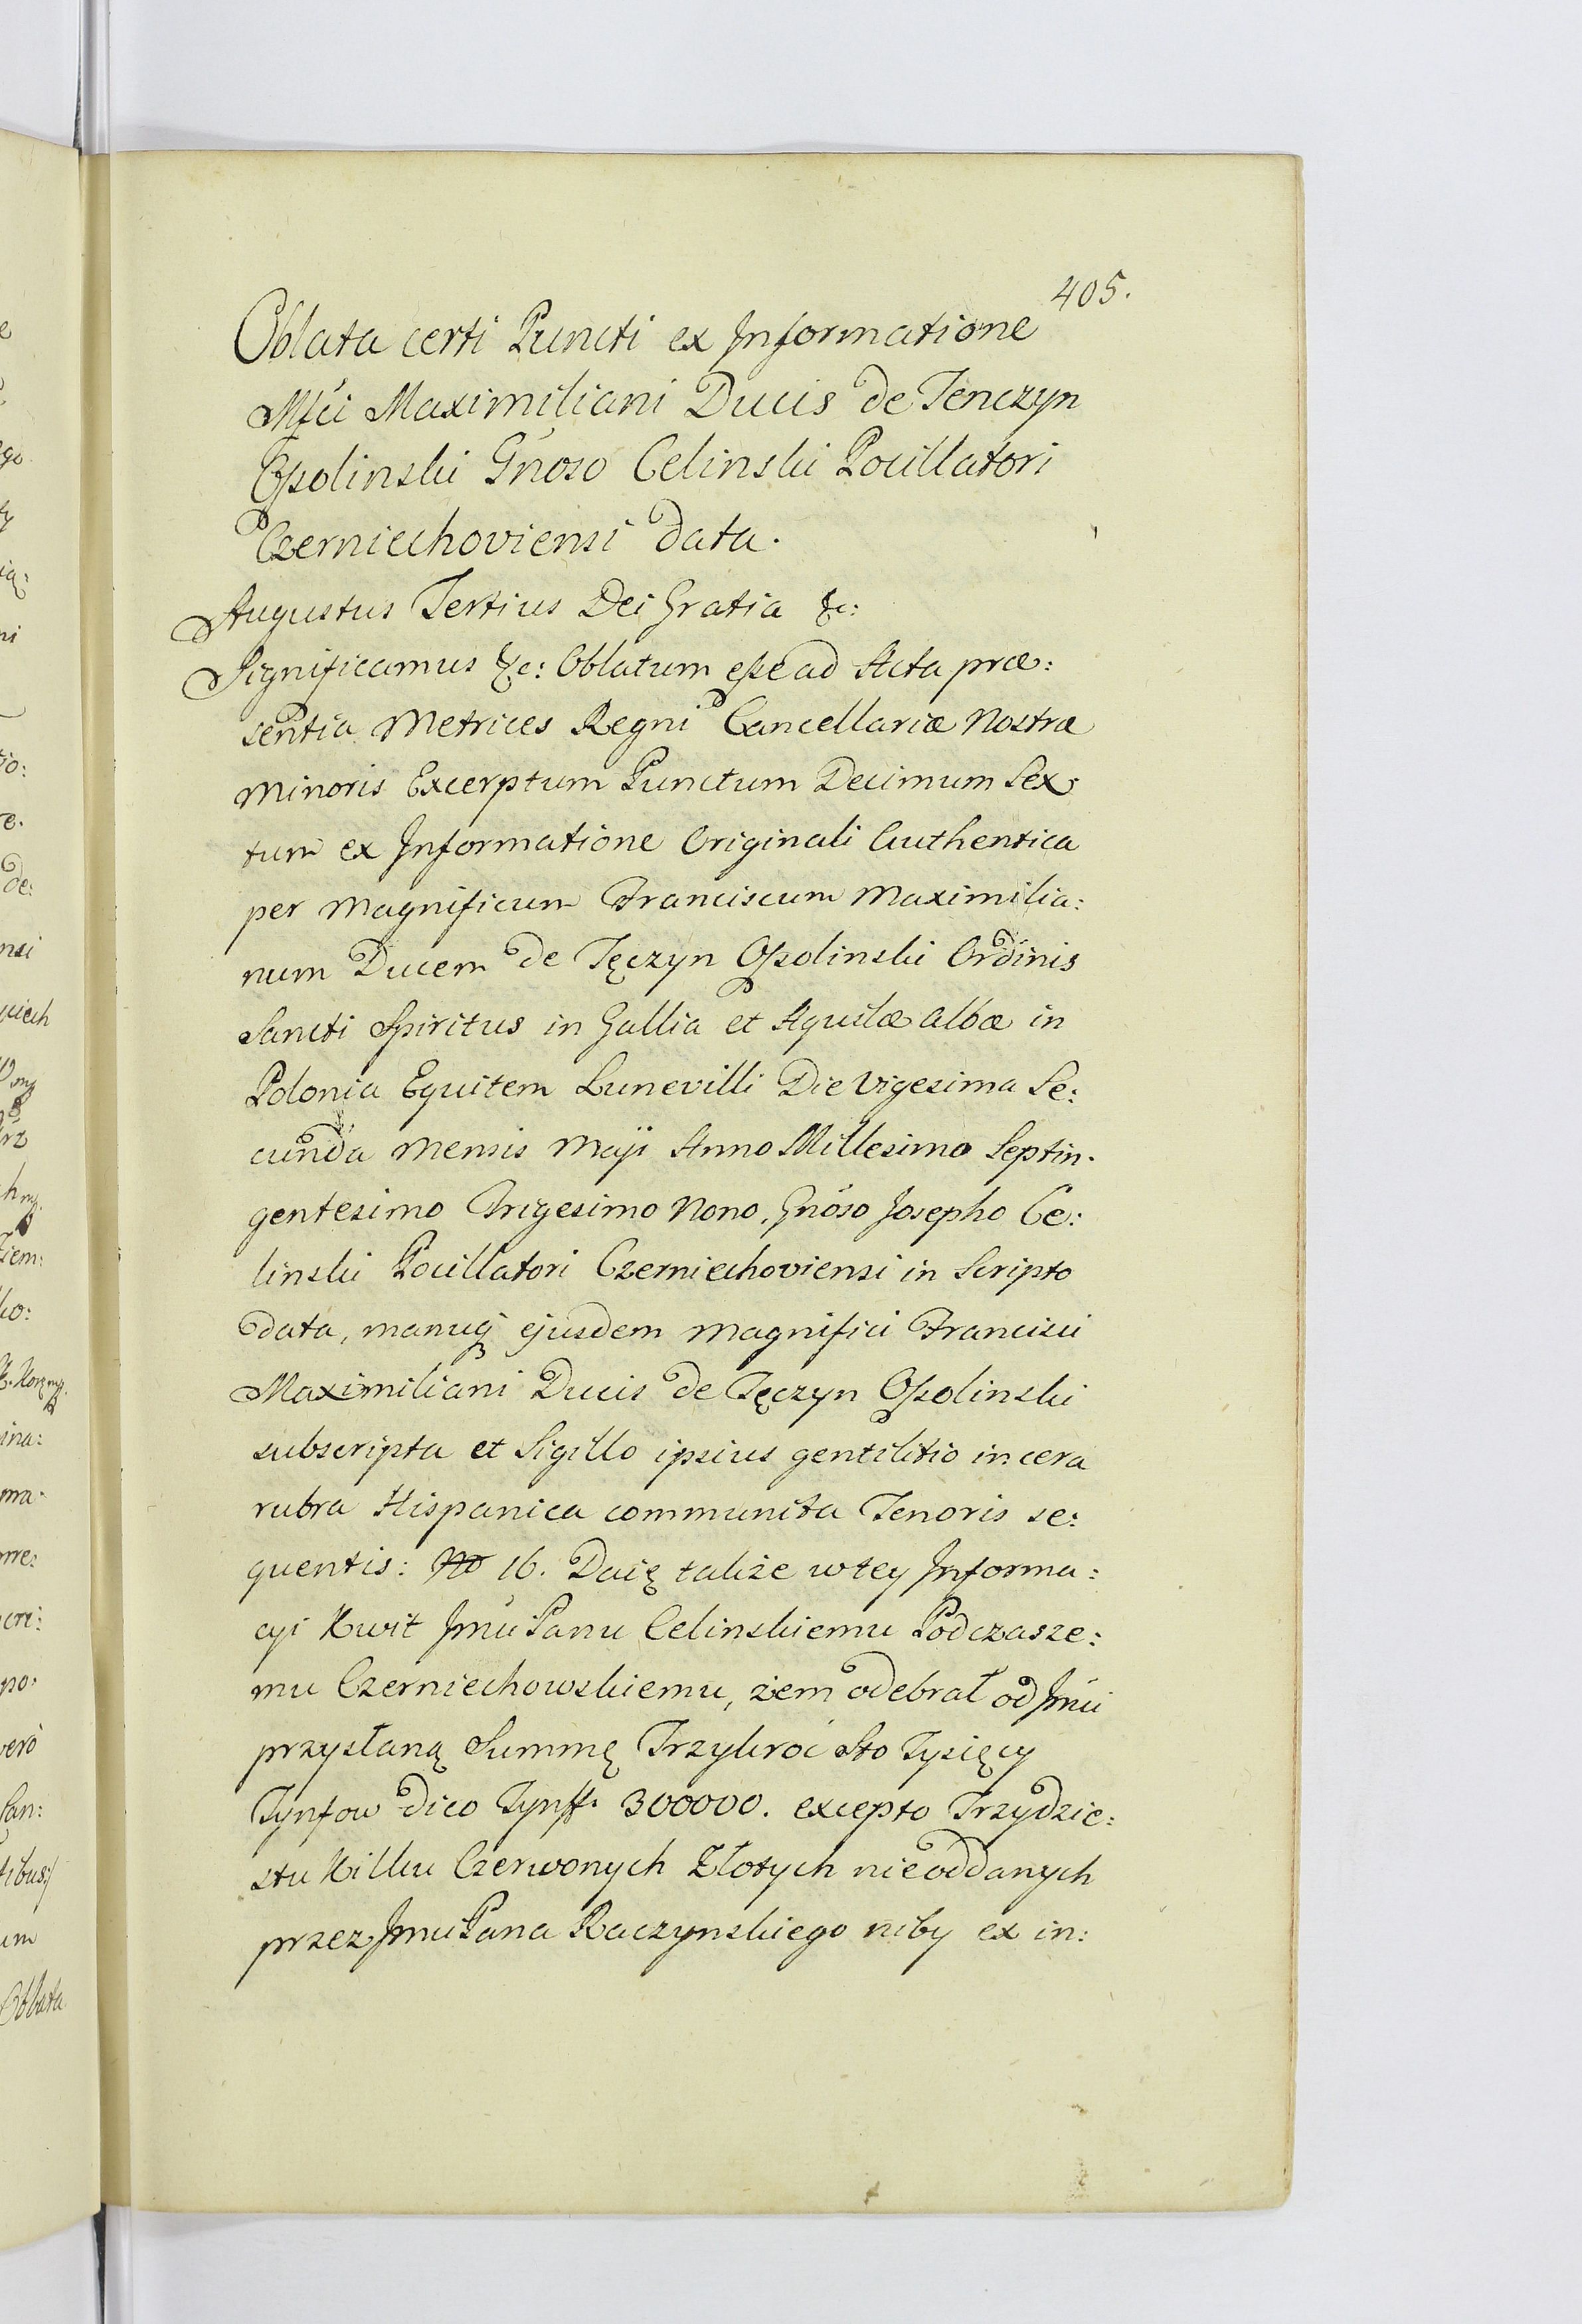 405.
Oblata certi Puncti ex Informatione
Mfci Maximiliani Ducis de Tenczyn
Ossolinski Gnoso Celinski Pocillatori
Czerniechoviensi data.
Augustus Tertius Dei Gratia &c:
Significamus &c: Oblatum esse ad Acta præ:
sentia Metrices Regni Cancellariæ Nostræ
Minoris Excerptum Punctum Decimum Sex
tum ex Informatione Originali Authentica
per Magnificum Franciscum Maximilia:
num Ducem de Tęczyn Ossolinski Ordinis
Sancti Spiritus in Gallia et Aquilæ albæ in
Polonia Equitem Lunevilli Die Vigesima Se:
cunda Mensis Maji Anno Millesimo Septin.
gentesimo Trigesimo Nono, Gnoso Josepho Ce:
linski Pocillatori Czerniechoviensi in Scripto
data, manuq; ejusdem Magnifici Francisci
Maximiliani Ducis de Tęczyn Ossolinski
subscripta et Sigillo ipsius gentilitio in cera
rubra Hispanica communita Tenoris se:
quentis: No 16. Daię także w tey Informa:
cyi Kwit Jmci Panu Celinskiemu Podczasze:
mu Czerniechowskiemu, żem odebrał od Jmci
przysłaną Summę Trzykroć Sto Tysięcy
Tynfow dico Tynff. 300000. excepto Trzydzie:
stu Kilku Czerwonych Złotych nieoddanych
przez Jmci Pana Raczynskiego niby ex in: